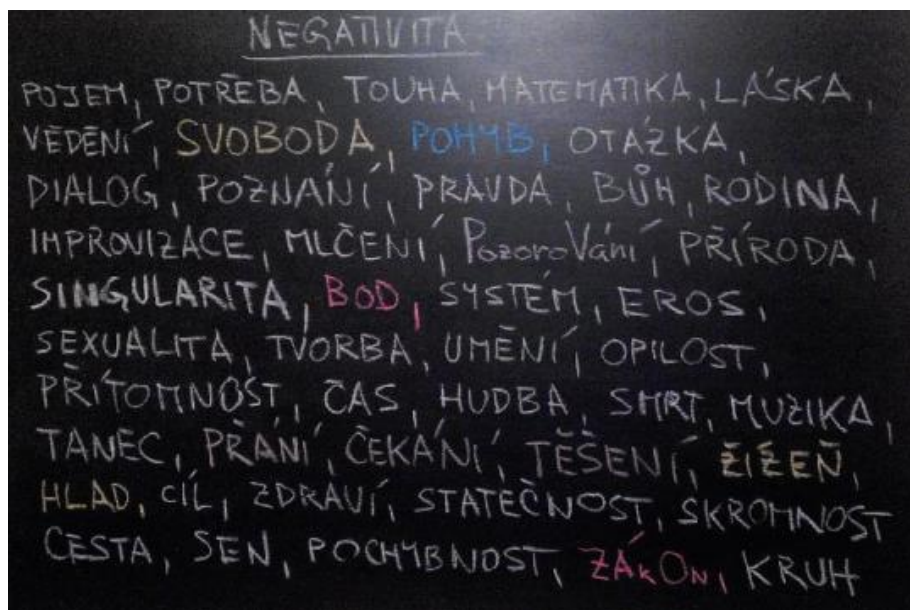 NEGATIVITA
POJEM, POTŘEBA, TOUHA, MATEMATIKA, LÁSKA,
VĚDĚNÍ, SVOBODA, POHYB, OTÁZKA,
DIALOG, POZNÁNÍ, PRAVDA, BŮH, RODINA,
IMPROVIZACE, MLČENÍ, PozoroVání, PŘÍRODA,
SINGULARITA, BOD, SYSTÉM, EROS,
SEXUALITA, TVORBA, UMĚNÍ, OPILOST,
PŘÍTOMNOST, ČAS, HUDBA, SMRT, MUZIKA,
TANEC, PŘÁNÍ, ČEKÁNÍ, TĚŠENÍ, ŽÍZEŇ,
HLAD, CÍL, ZDRAVÍ, STATEČNOST, SKROMNOST
CESTA, SEN, POCHYBNOST, ZÁkOn, KRUH